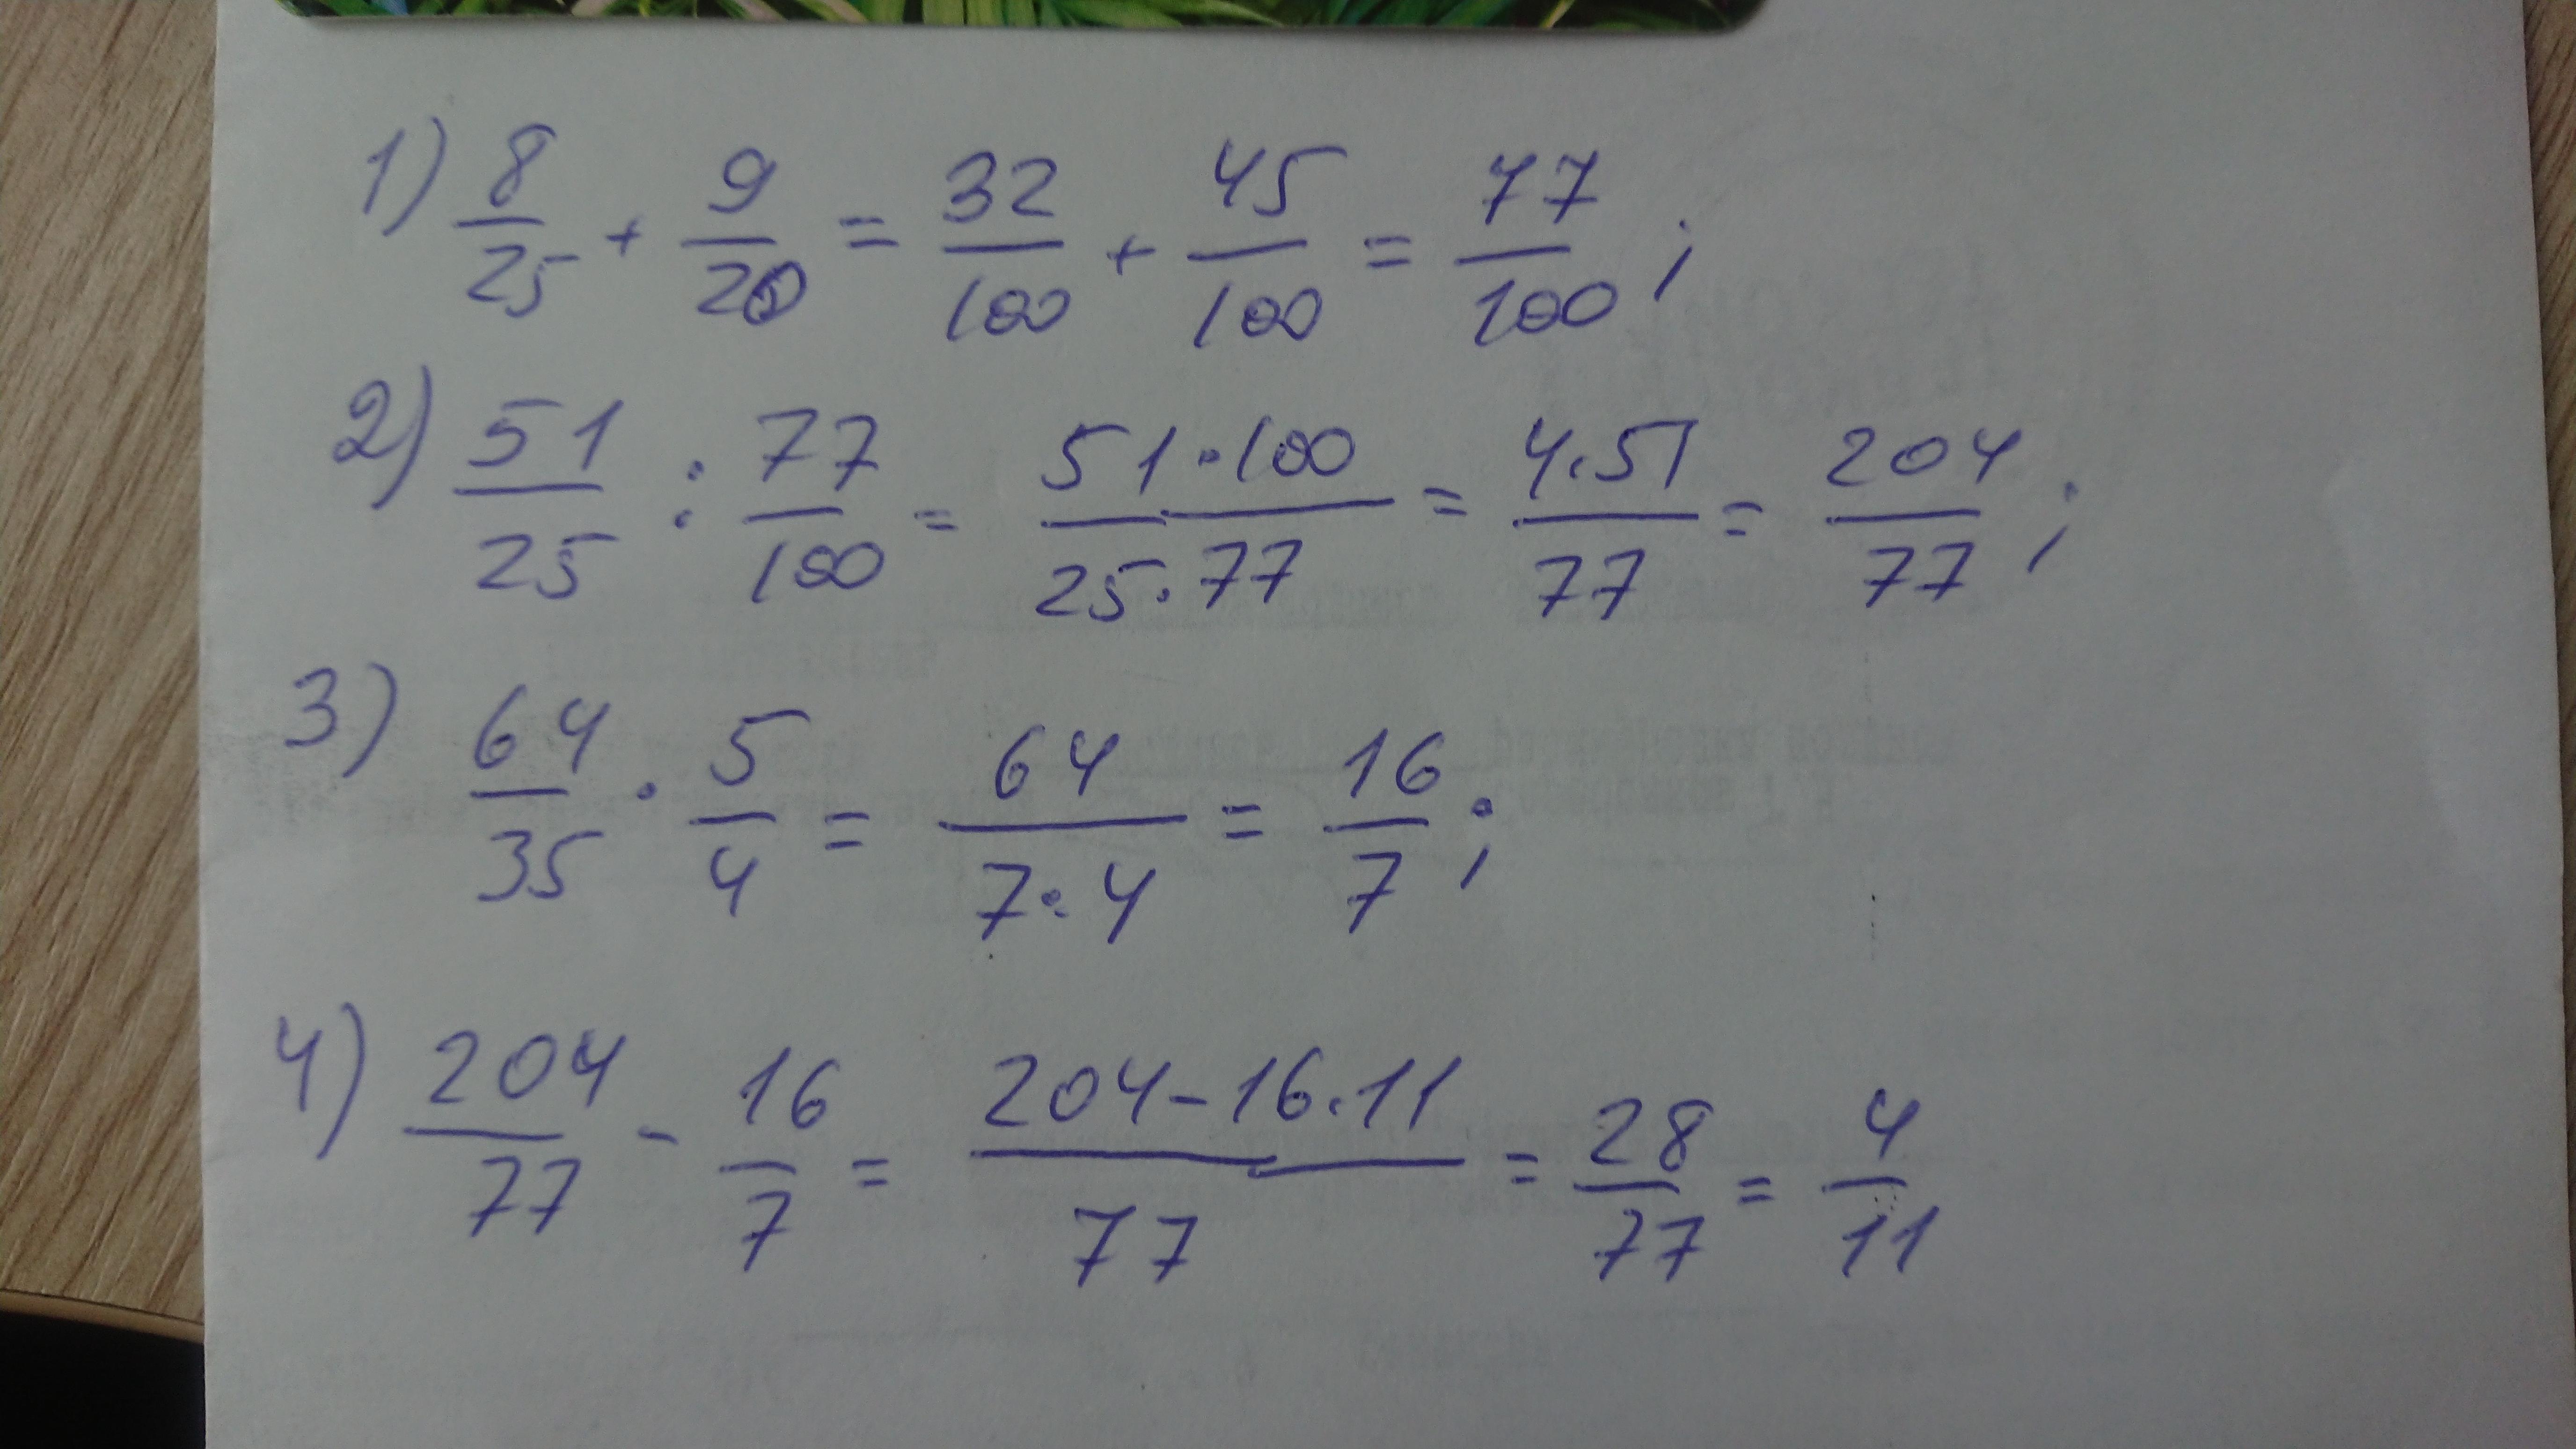 1) 8/25 + 9/20 = 32/100 + 45/100 = 77/100 ;
2) 51/25 : 77/100 = 51·100/25·77 = 4·51/77 = 204/77 ;
3) 64/35 · 5/4 = 64/7·4 = 16/7 ;
4) 204/77 - 16/7 = 204-16·11/77 = 28/77 = 4/11